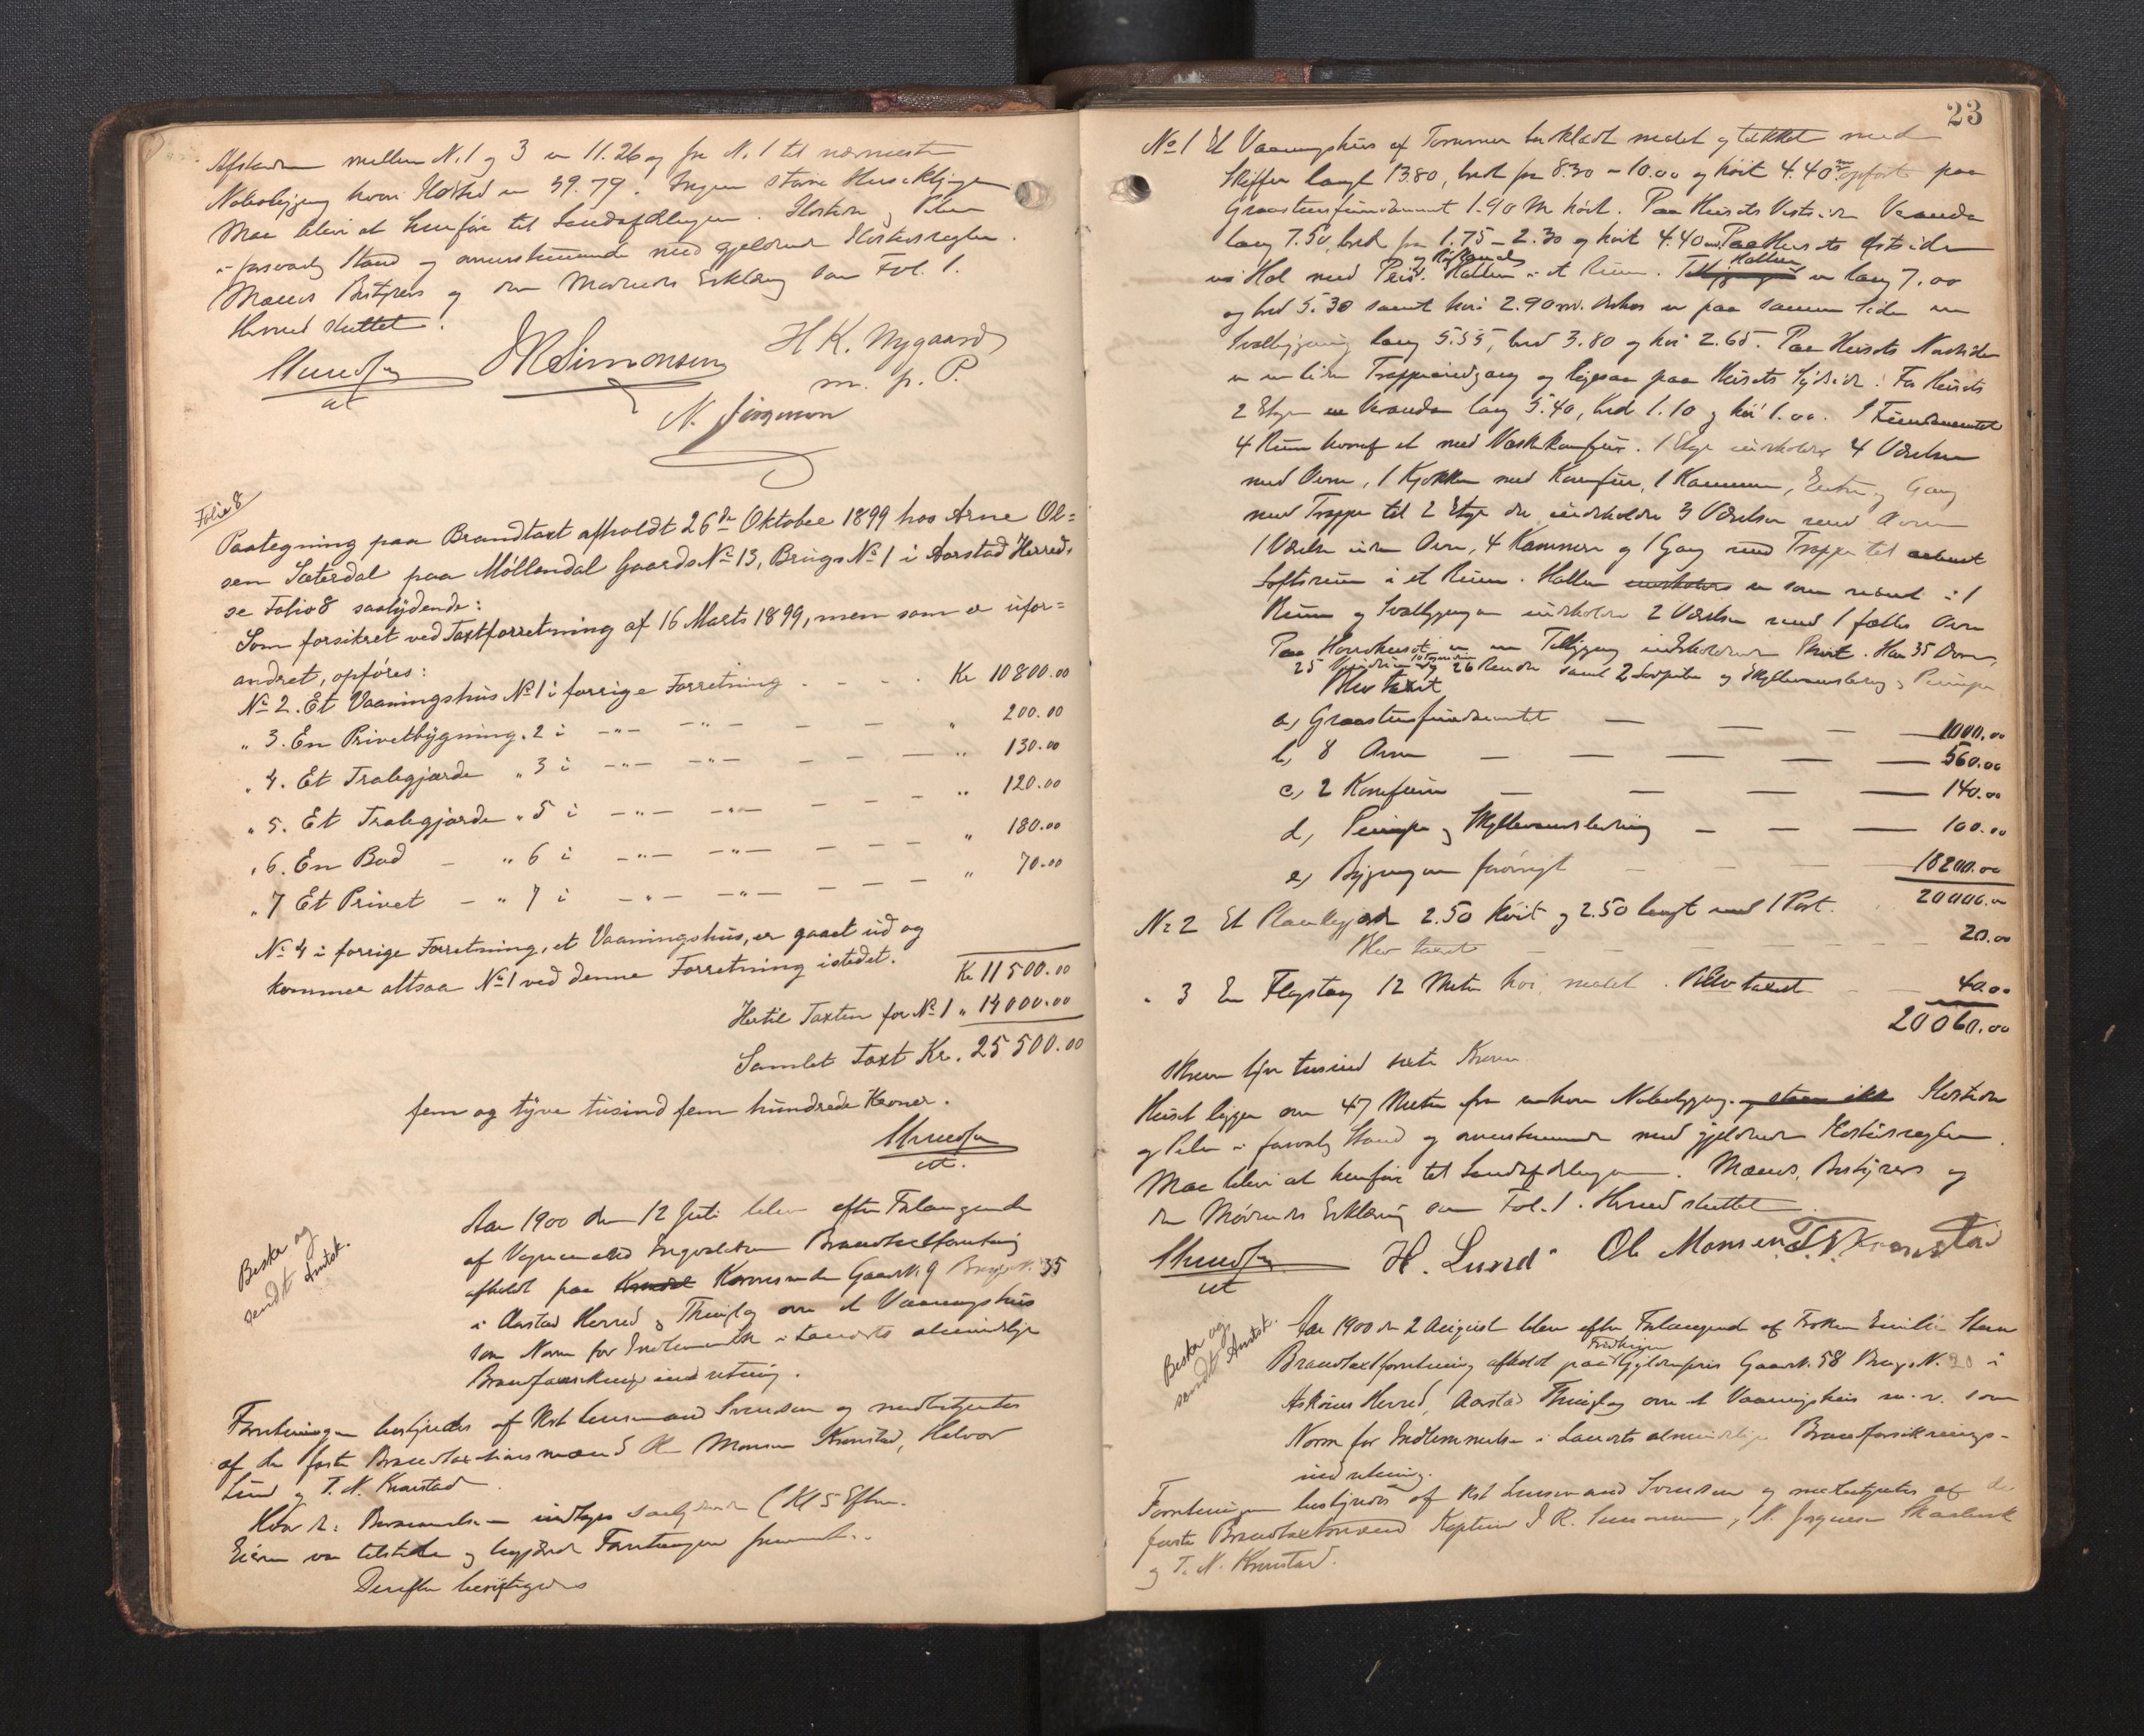 Afstanden mellem N. 1 og 3 er 11.26 og fra N. 1 til nærmeste
Nabobygning hvori Ildsted er 39.79. Ingen større Huseklynge
Maa blive at henføre til Landafdelingen. Ildsteder og Piber
i forsvarlig Stand og overensstemmende med gjeldende Ildstedsregler.
Mænds Bestyrers og den Mødendes Erklæring som Fol. 1.
Hermed sluttet.
JRSimonsen H K. Nygaard
m. p. P.
N. Jørgensen
Folio 8
Paategning paa Brandtaxt afholdt 26de Oktober 1899 hos Arne Ol=
sen Sæterdal paa Møllendal Gaards No 13, Brugs No 1 i Aarstad Herred,
se Folio 8 saalydende:
Som forsikret ved Taxtforretning af 16 Marts 1899, men som er ufor=
andret, opføres:
No 2. Et Vaaningshus No 1 i forrige Forretning - - - Kr 10800.00
" 3. En Privetbygning " 2 i -"- -"- - - " 200.00
" 4. Et Tralegjærde " 3 i -"- -"- - - - " 130.00
" 5. Et Tralegjærde " 5 i -"- -"- - - - " 120.00
" 6. En Bod - " 6 i -"- -"- - - - " 180.00
" 7 Et Privet - " 7 i -"- -"- - - - " 70.00
No 4 i forrige Forretning, et Vaaningshus, er gaaet ud og
kommer altsaa No 1 ved denne Forretning istedet. Kr 11500.00
Hertil Taxten for No 1 " 14000.00
Samlet Taxt Kr. 25500.00
fem og tyve tusind fem hundrede Kroner.
Besk. og
sendt Amtsk.
Aar 1900 den 12 Juli blev efter Forlangende
af Brandtaxtforretning
afholdt paa Gaards N. 9 Brugs N. 35
i Aarstad Herred og Thinglag over et Vaaningshus
som Norm for Indlemmelse i Landets almindelige
Brandforsikringsindretning.
Forretningen bestyredes af Kst Lensmand Svendsen og medbetjentes
af de faste Brandtaxtionsmænd Ole Monsen Kronstad, Halvor
Lund og T. N. Kronstad.
indtages (Kl 5 Efterm.
Eieren var tilstede og begjærede Forretningen fremmet.
Derefter besigtigedes
23
No 1 Et Vaaningshus af Tømmer bordklædt malet og tækket med
Skiffer langt 13.80, bredt fra 8.30 - 10.00 og høit 4.40 m opført paa
Graastensfundament 1.90 M høit. Paa Husets Vestside Veranda
lang 7.50, bred fra 1.75 - 2.30 og høit 4.40 m. Paa Husets Østside
en Hal med Peis. Hallen i et Rum. Hallen er lang 7.00
og bred 5.30 samt høi 2.90 m. Videre er paa samme Side en
Svalbygning lang 5.55, bred 3.80 og høi 2.65. Paa Husets Nordside
er en liden Trappeindgang og ligesaa paa Husets Sydside. For Husets
2 Etage en Veranda lang 5.40, bred 1.10 og høi 1.00. I Fundamentet
4 Rum hvoraf et med Vaskekomfur. 1 Etage indeholder 4 Værelser
med Ovne, 1 Kjøkken med Komfur, 1 Kammer, Entre og Gang
med Trappe til 2 Etage der indeholder 3 Værelser med Ovne
1 Værelse uden Ovn, 4 Kammere og 1 Gang med Trappe til
Loftsrum i et Rum. Hallen indeholder er som nævnt i 1
Rum og Svalbygningen indeholder 2 Værelser med 1 fælles Ovn
Paa Hovedhuset er en Tilbygning indeholdende Privet. Har 35 Døre,
25 Vinduer og 26 Ruder samt 2 og Skyllevandsledning og Pumpe
Blev taxt
a, Graastensfundamentet — — — 1000.00
b, 8 Ovne — — — — — 560.00
c, 2 Komfurer — — — 140.00
d, Pumpe og Skyllevandsledning — — — 100.00
e, Bygningen forøvrigt — — — 18200.00
20000.00
No 2 Et Plankegjærde 2.50 høit og 2.50 langt med 1 Port.
Blev taxt — — — — 20.00
" 3 En Flagstang 12 Meter høi malet. Blev taxt — — 40.00
20060.00
Skriver tyve tusind sexti Kroner.
Huset ligger over 47 Meter fra enhver Nabobygning. og staar ikke Ildsteder
og Piber i forsvarlig Stand og overensstemmende med gjeldende Ildstedsregler.
Maa blive at henføre til Landafdelingen. Mænds, Bestyrers og
den Mødendes Erklæring som Fol. 1. Hermed sluttet.
H. Lund Ole Monsen T N Kronstad
Besk. og
sendt Amtsk.
Aar 1900 den 2 August blev efter Forlangende af Frøken Emilie
Brandtaxtforretning afholdt paa Gaards N. 58 Brugs N. 20 i
Askøens Herred, Aarstad Thinglag over et Vaaningshus m. v. som
Norm for Indlemmelse i Landets almindelige Brandforsikrings-
indretning.
Forretningen bestyredes af Kst Lensmand Svendsen og medbetjentes af de
faste Brandtaxtmænd Kaptein J. R. Simonsen, N. Jørgensen
og T. N. Kronstad.